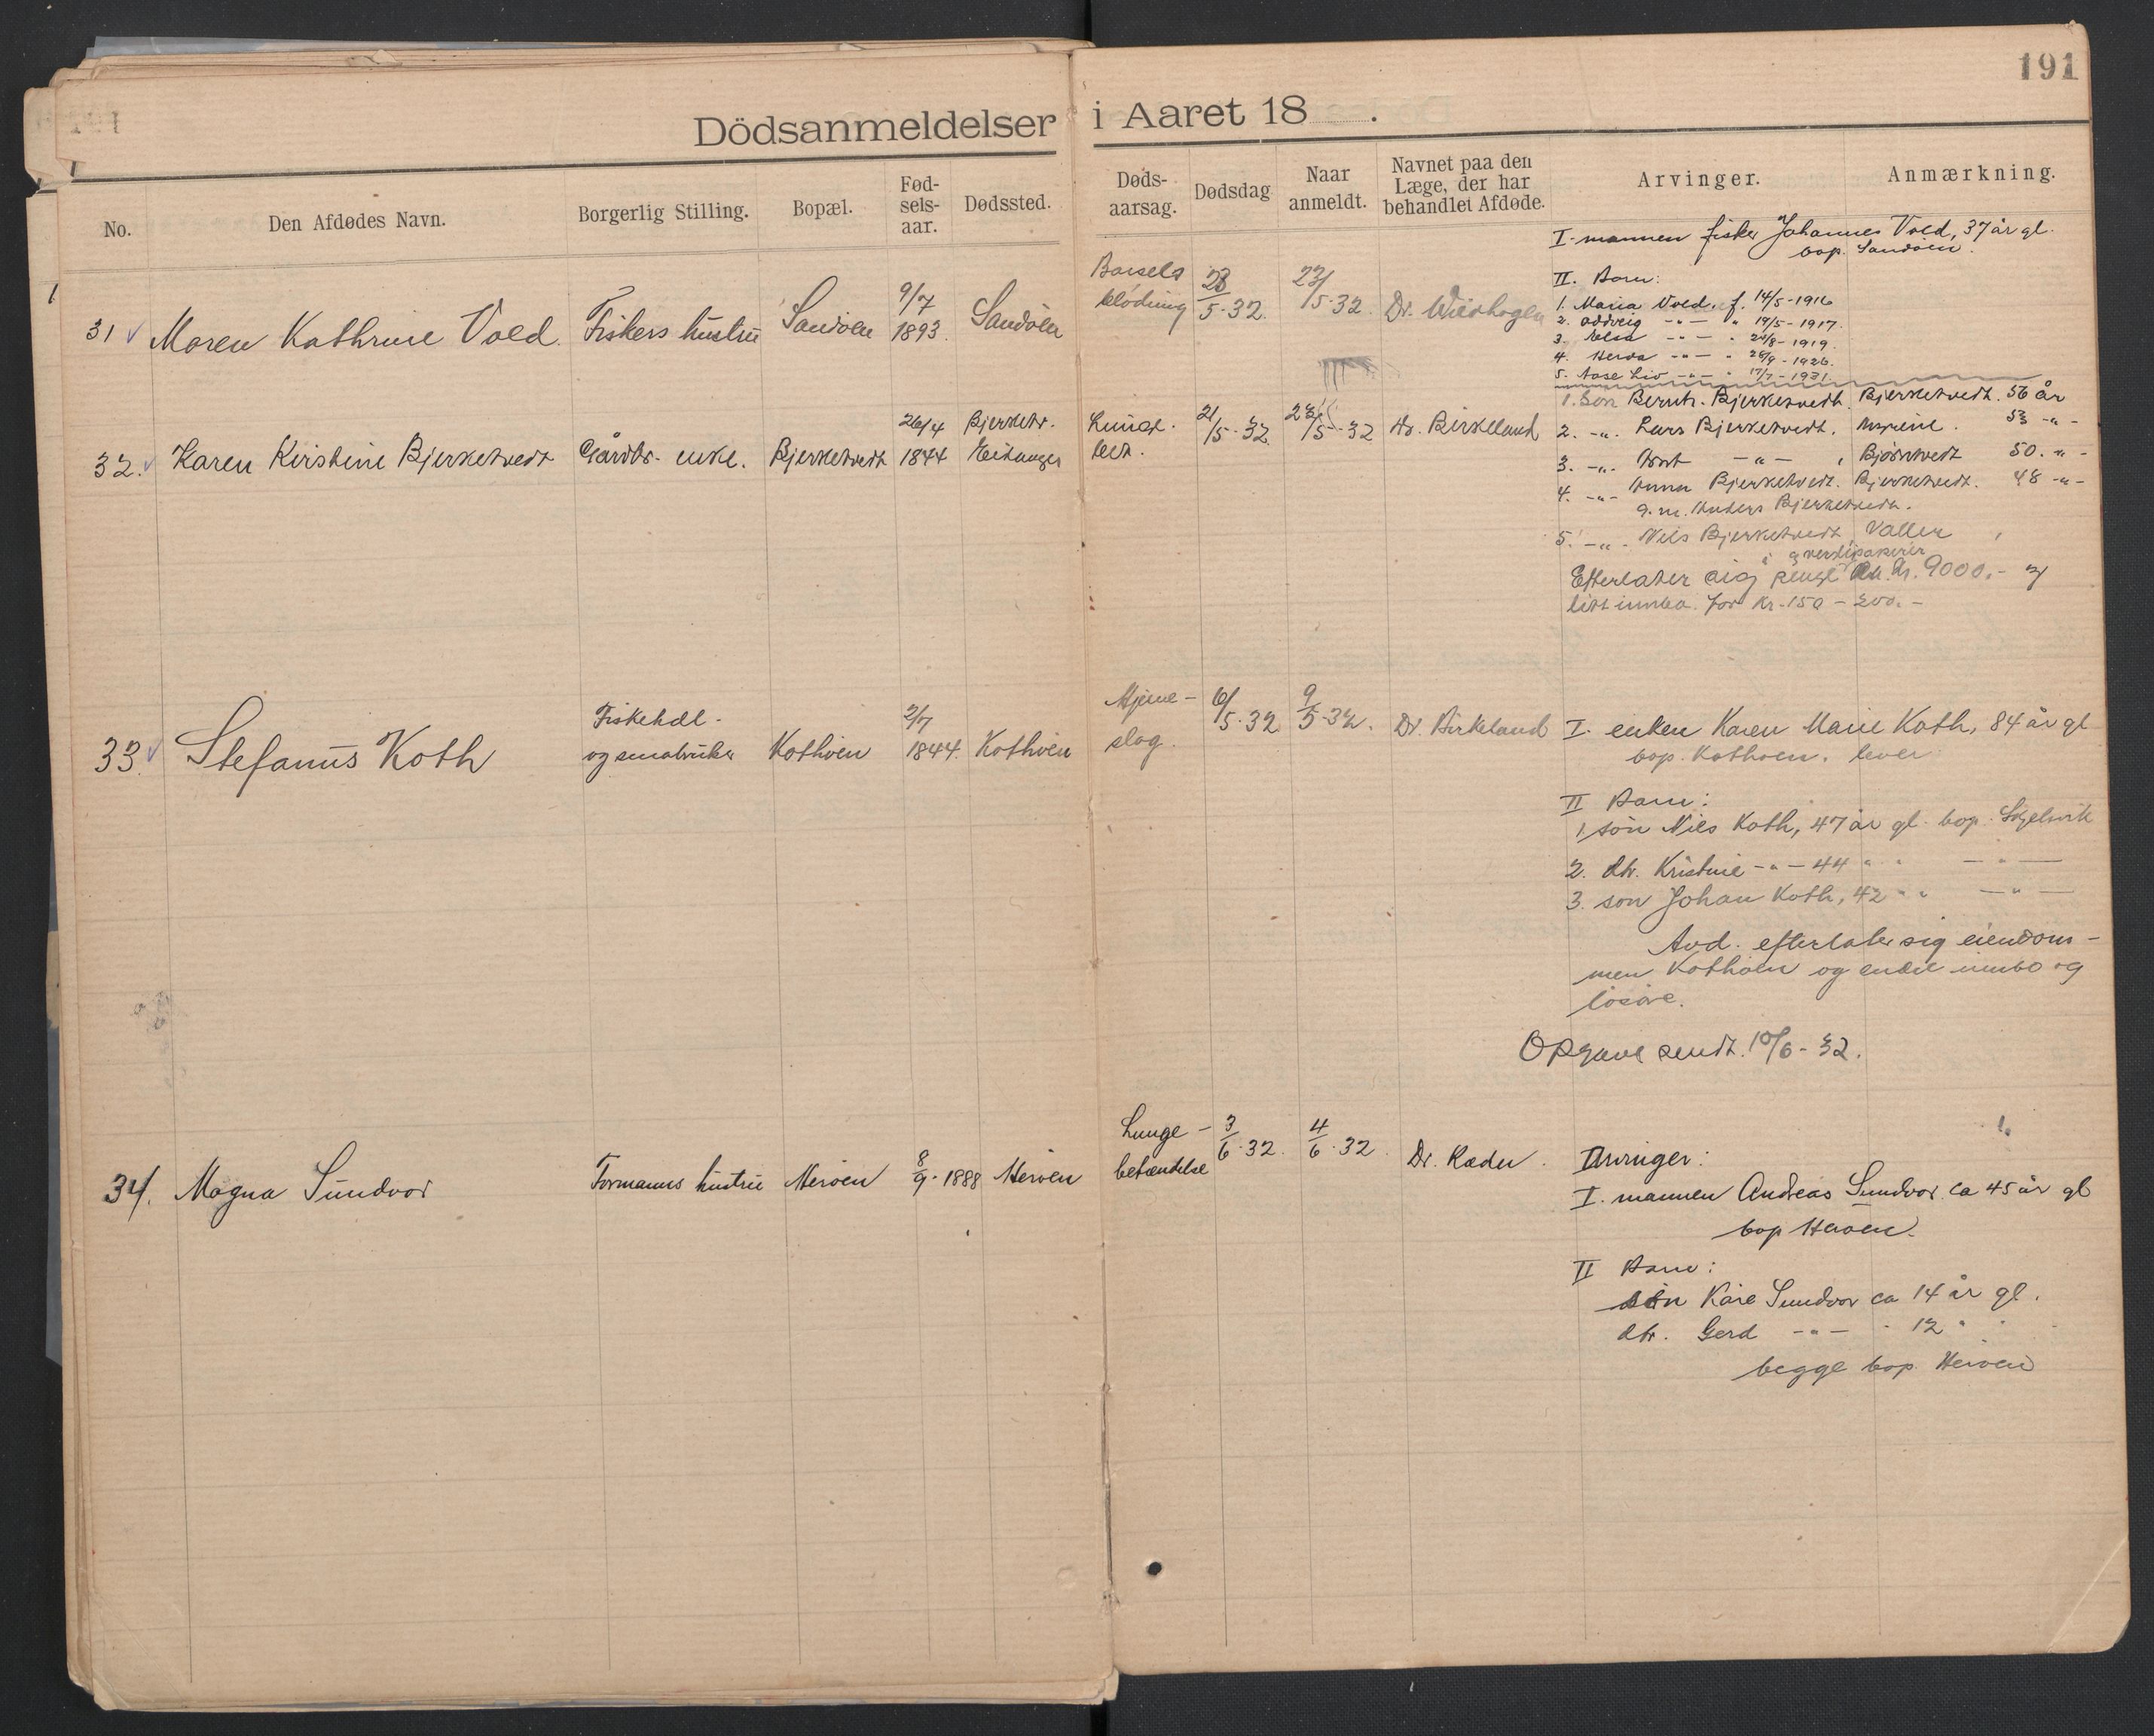 191
Dödsanmeldelser i Aaret 18 .
No.
Den Afdødes Navn.
Borgerlig Stilling.
Bopæl.
Fød-
sels-
aar.
Dødssted.
Døds-
aarsag.
Dødsdag
Naar
anmeldt.
Navnet paa den
Læge, der har
behandlet Afdøde.
Arvinger.
Anmærkning.
31 Maren Kathrine Vold.
Fiskers hustru
Sandöen
9/7
1893.
Sandöen
Barsels
blödning
23/5-32.
23/5-32.
Dr.
I. mannen fisker Johannes Vold, 37 år gl.
bop. Sandöen.
II. Barn:
1. Maria Vold, f. 14/5-1916
2. Oddveig -"- " 19/5-1917.
3. Elsa -"- " 24/8-1919.
4. Herda -"- " 26/9-1926.
5. Aase Liv -"- " 17/7-1931.
32. Karen Kirstine Bjerketvedt
Gårdbr. enke.
Bjerketvedt
26/4
1844
Bjerketv.
Eidanger
Lunge-
bet.
21/5-32
23/5-32
Dr. Birkeland
1. Sön Bernh. Bjerketvedt. Bjerketvedt. 56 år
2. -"- Lars Bjerketvedt. 53 -"-
3. -"- -"- , Bjørntvedt 50. -"-
4. -"- Anna Bjerketvedt. Bjerketvedt. 48 -"-
g. m. Anders Bjerketvedt.
5. -"- Nils Bjerketvedt, Valler
i & verdipapirer
Efterlater sig penge ca. kr. 9000,- og
litt innbo for kr. 150 - 200.-
33. Stefanus Koth
Fiskehdl.
og småbruker
Kothöen
2/7
1844.
Kothöen
Hjerne-
slag.
6/5-32
9/5-32.
Dr. Birkeland
I. enken Karen Marie Koth, 84 år gl
bop. Kothöen. lever
II Barn:
1. sön Nils Koth, 47 år gl. bop.
2. dtr. Kristine -"- 44 " " -"-
3. sön Johan Koth, 42 " " -"-
Avd. efterlater sig eiendom-
men Kothöen og endel innbo og
lösöre.
Opgave sendt. 10/6-32.
34. Magna Sundvor
Formanns hustru
Heröen
8/9-1888
Heröen
Lunge-
betændelse
3/6-32.
4/6-32.
Dr. Ræder.
Arvinger:
I. mannen Andreas Sundvor ca 45 år gl
bop Heröen.
II Barn:
sön Kåre Sundvor ca 14 år gl.
dtr. Gerd -"- " 12 " "
begge bop. Heröen